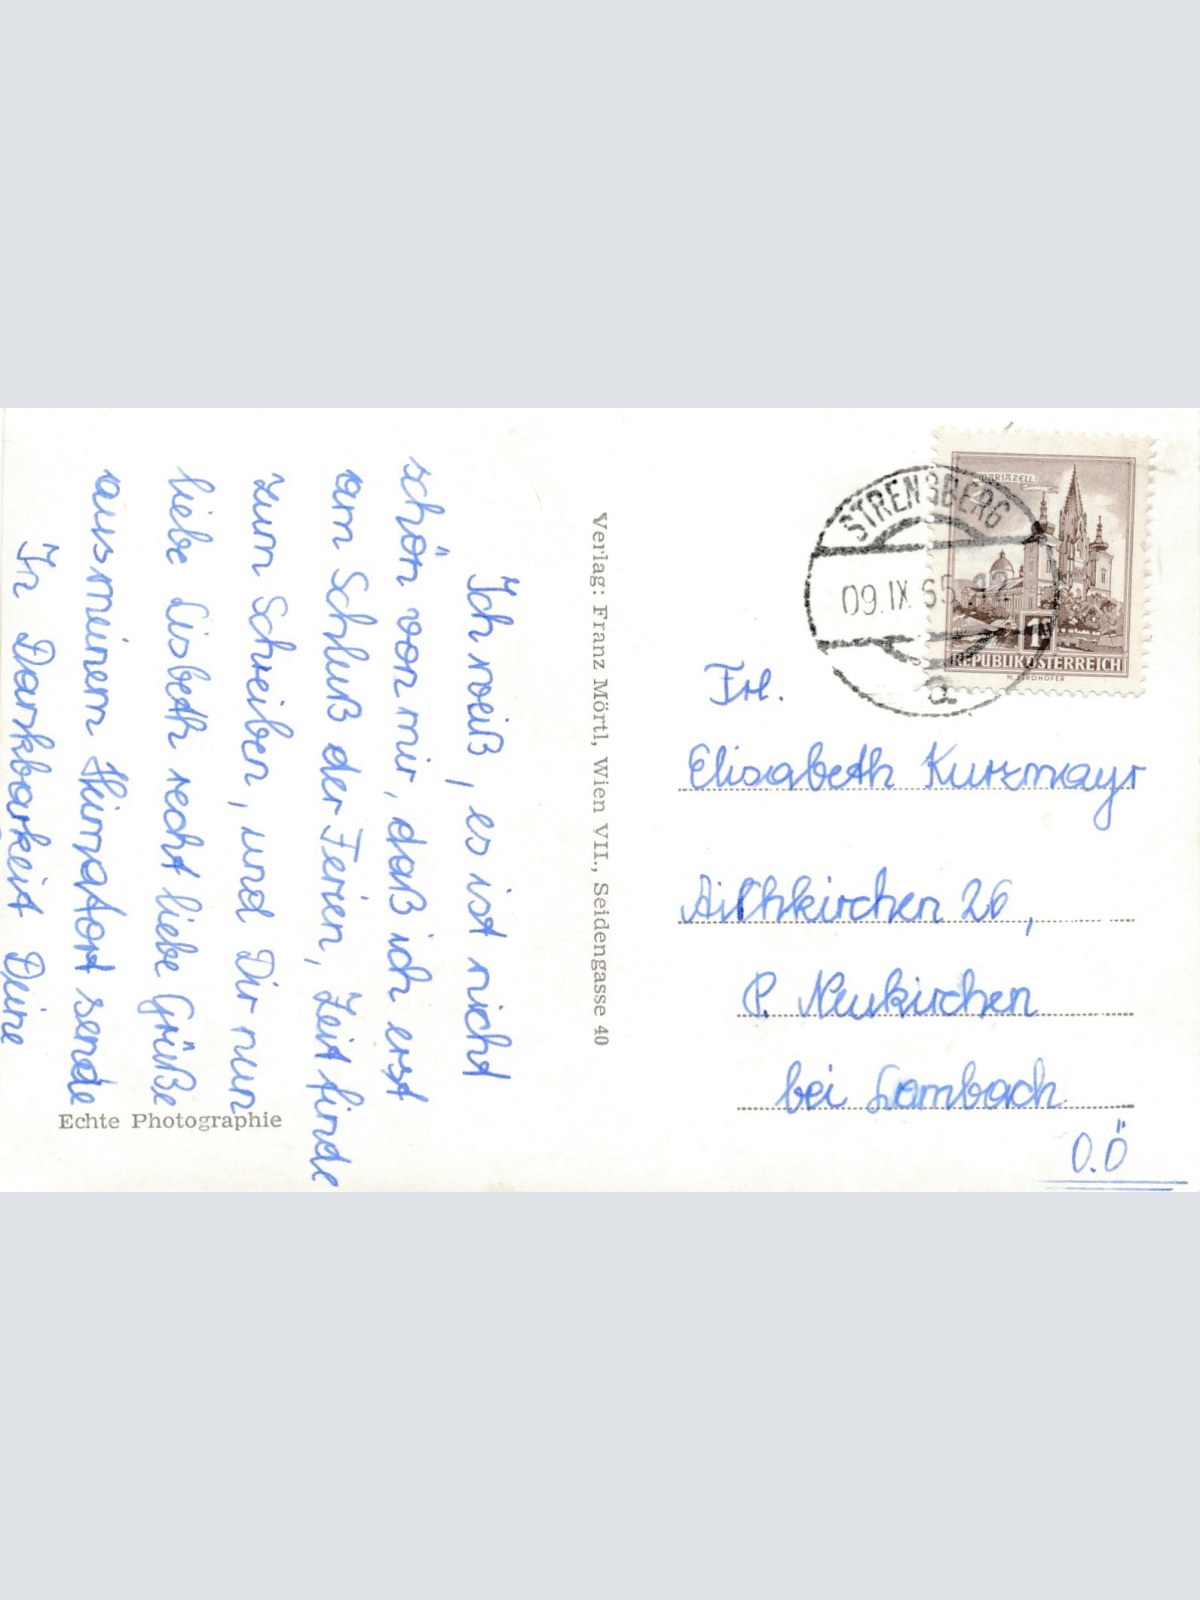 Ich weiß, es ist nicht
schön von mir, daß ich erst
am Schluß der Ferien, Zeit finde
zum Schreiben, und Dir nun
liebe Lisbeth recht liebe Grüße
aus meinem Heimatort sende
In Dankbarkeit Deine
Echte Photographie
Verlag: Franz Mörtl, Wien VII., Seidengasse 40
STRENGBERG
09.IX 65 12
a
MARIAZELL
1
REPUBLIK ÖSTERREICH
Frl.
Elisabeth Kurzmayr
Aichkirchen 26,
P. Neukirchen
bei Lambach
O.Ö